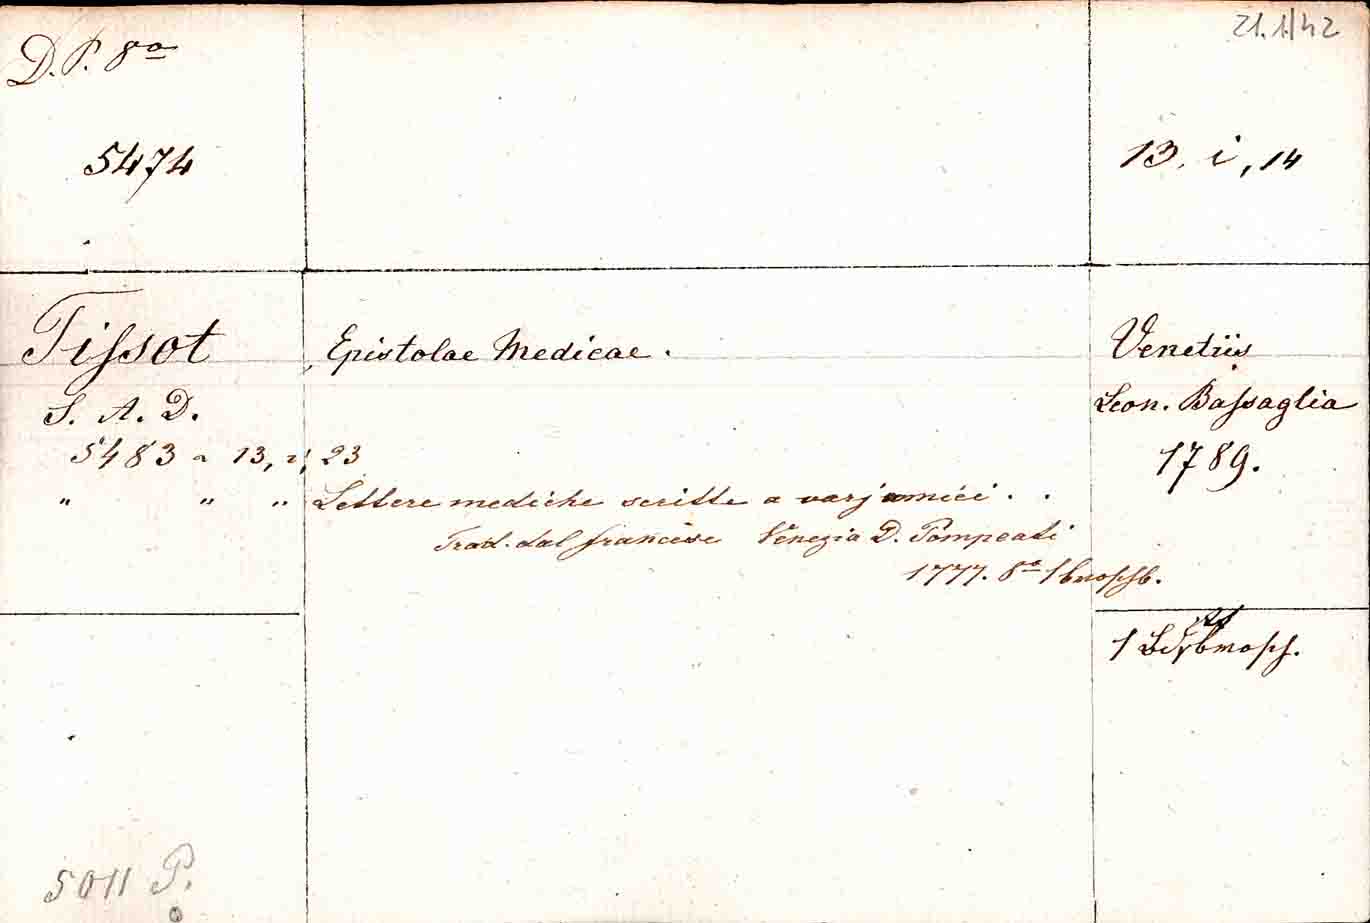 D. P. 8o
21.1/42
5474
13. i, 14
Tissot
Epistolae Medicae.
Venetiis
S. A. D.
Leon. Bassaglia
5483 a 13, i, 23
1789.
" " " Lettere mediche scritte a varj amici . .
Trad. dal francese Venezia D. Pompeati
1777. 8o 1 brosch.
1 brosch.
5011 P.